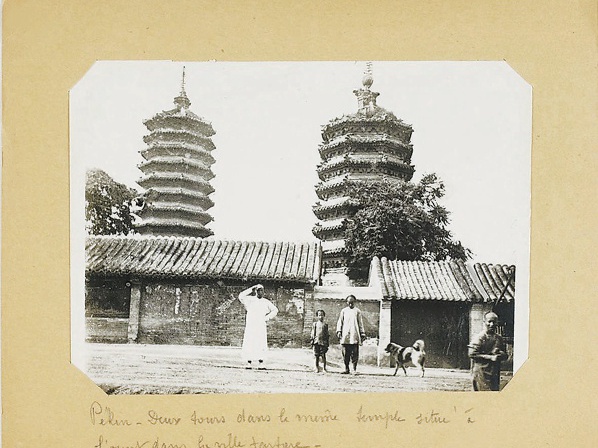 Pékin - Deux tours dans le même temple situé à
l'ouest dans la ville tartare -